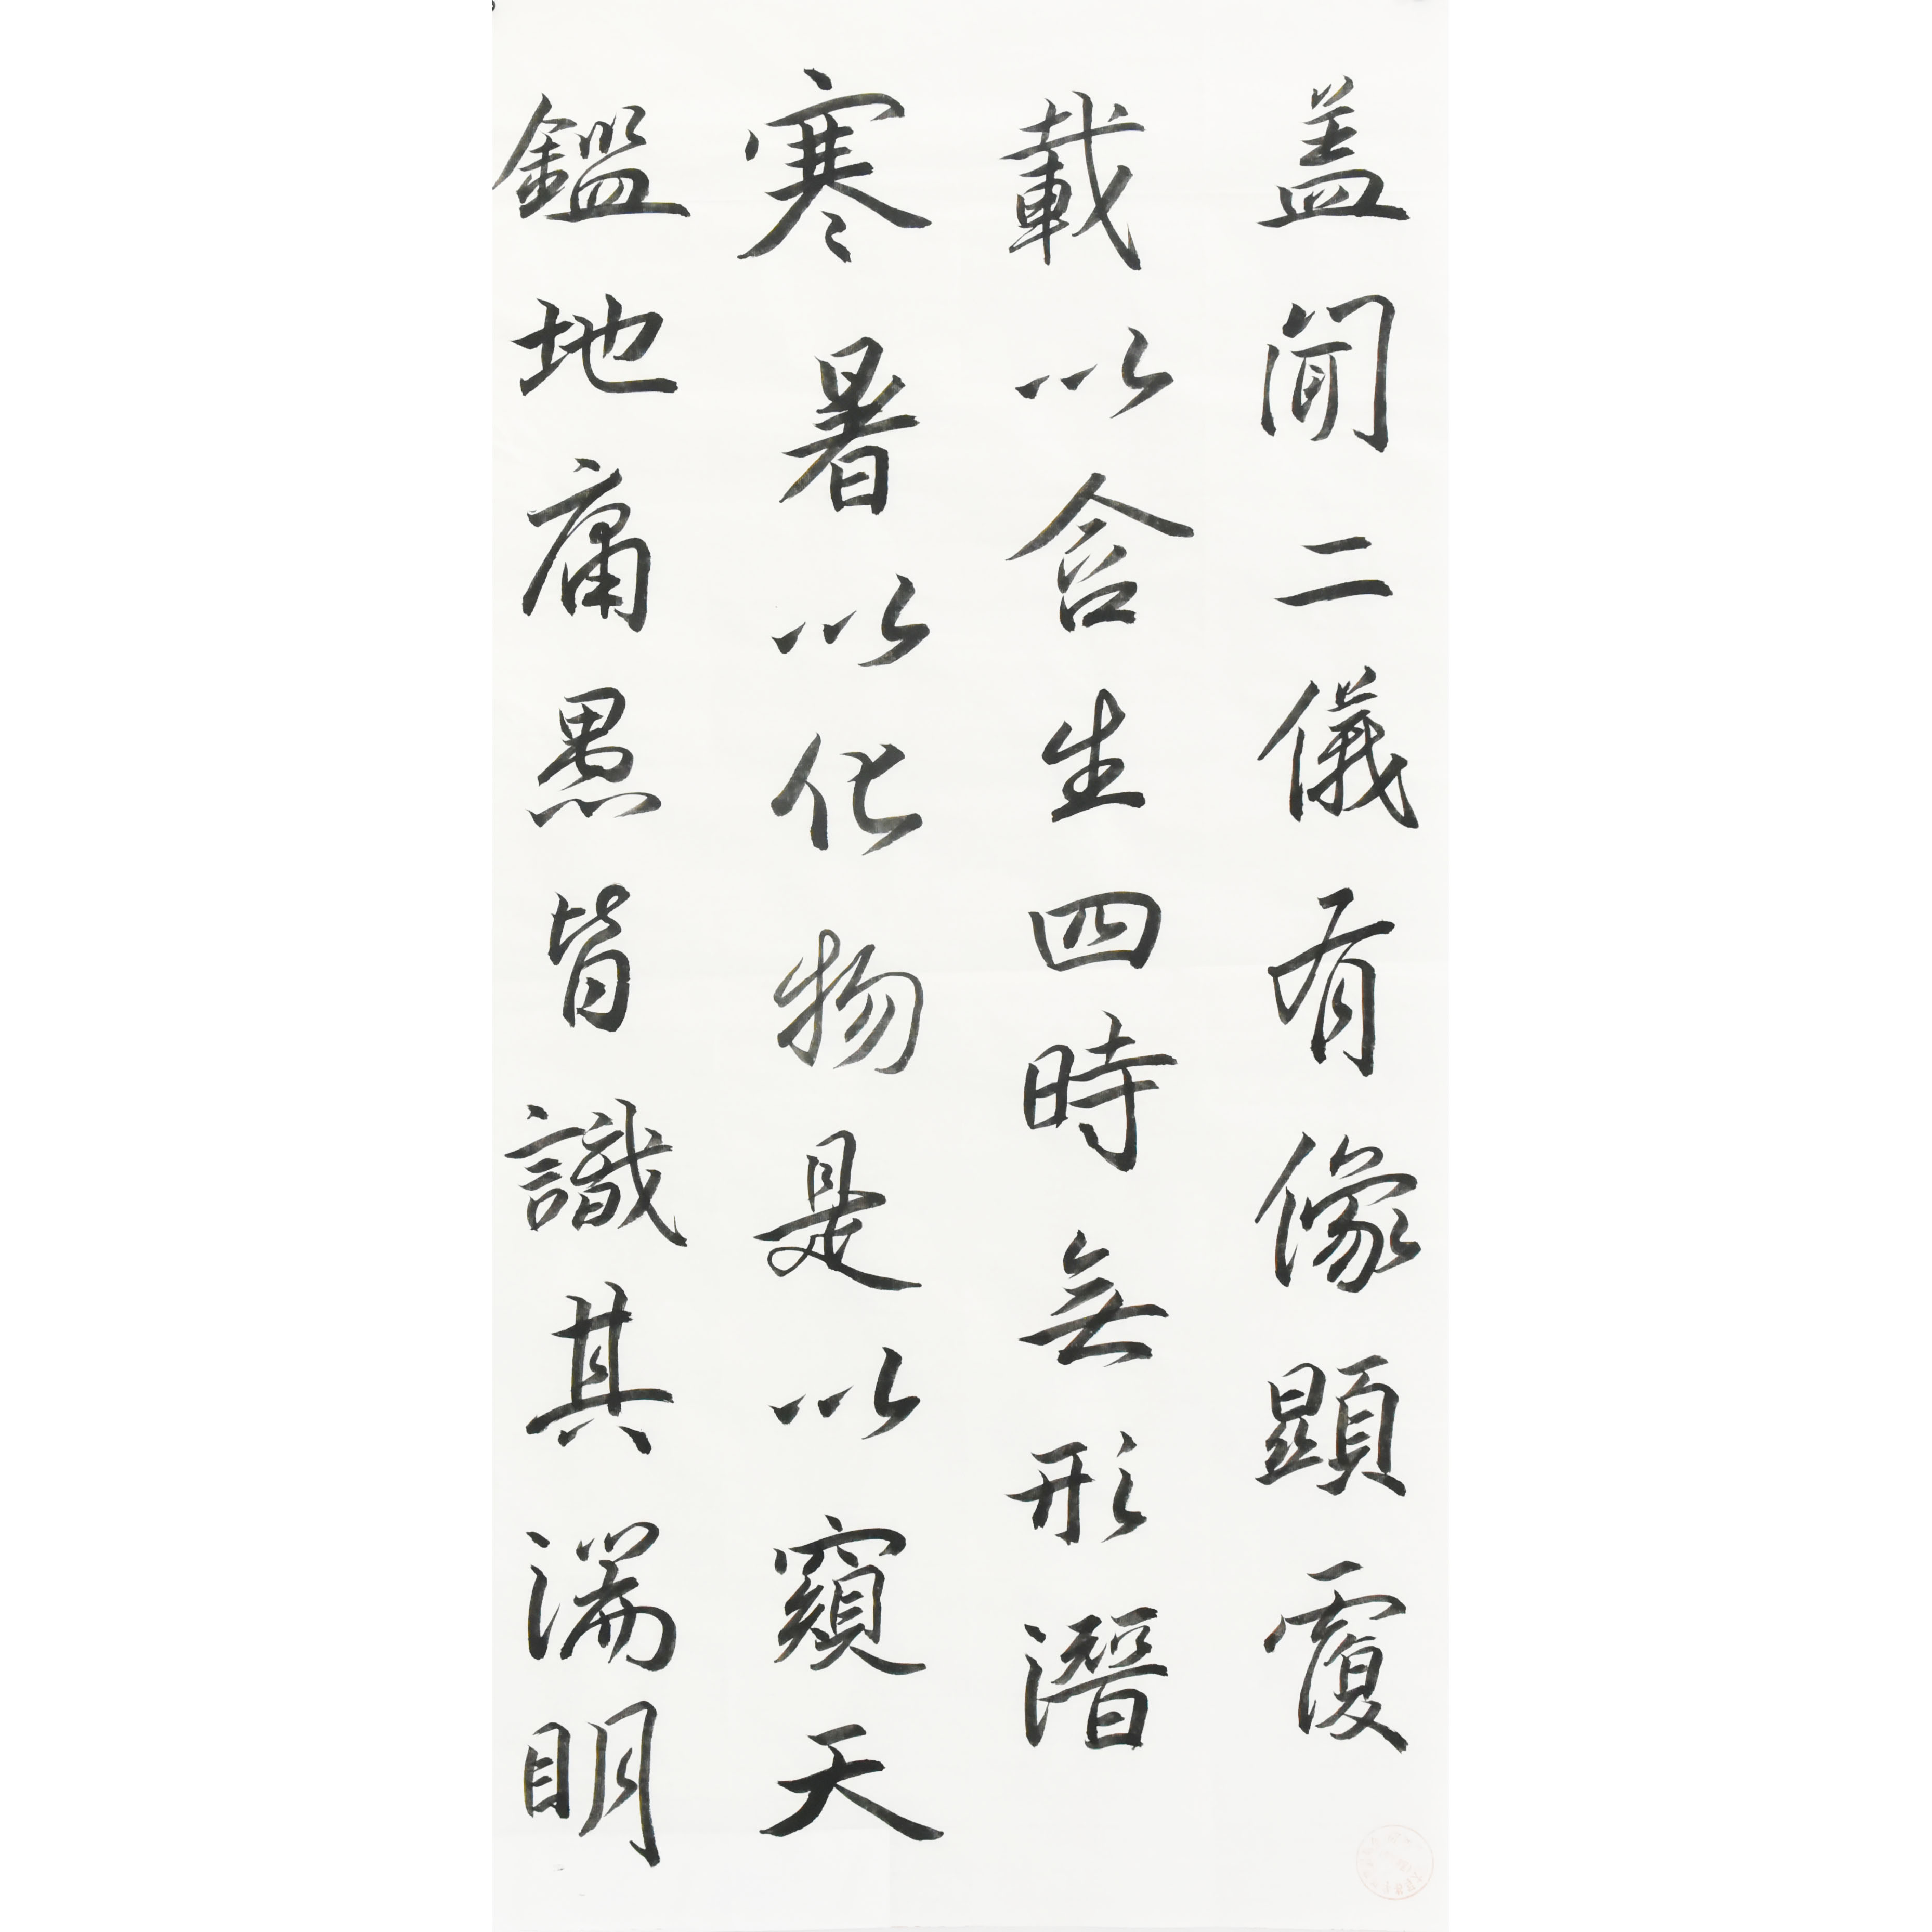 盖聞二儀有像顯覆
載以含生四時無形潛
寒暑以化物是以窺天
鑑地庸愚皆識其端明